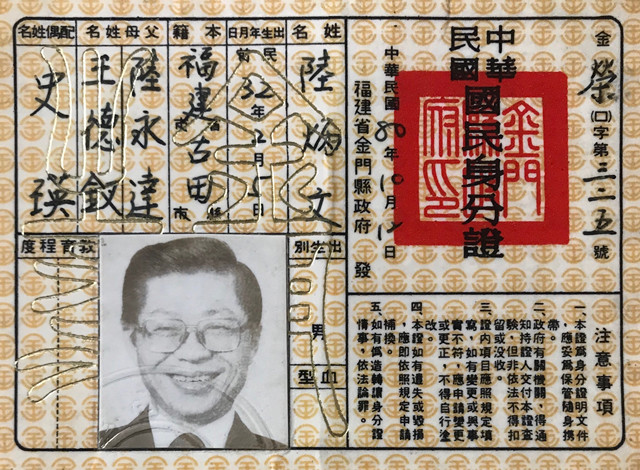 金榮(口)字第三二五號
中華民國國民身分證
金門縣政府印
中華民國80年10月1日
福建省金門縣政府 發
姓名
陸炳文
出生年月日
民前
32年2月 日
本籍
福建省市
古田縣市
父母姓名
陸永達
王德釵
配偶姓名
史瑛
出生別
男
血型
教育程度
注意事項
一、本證為身分證明文件
，應妥為保管隨身攜
帶。
二、政府有關機關，得通
知持證人交付本證查
驗，但非依法不得扣
留或沒收。
三、證內項目應照規定填
寫，如有變更或與事
實不符，應申請變更
或更正，不得自行塗
改。
四、本證如有遺失或毀損
，應即依照規定申請
補換。
五、如有偽造轉讓身分證
情事，依法論罪。